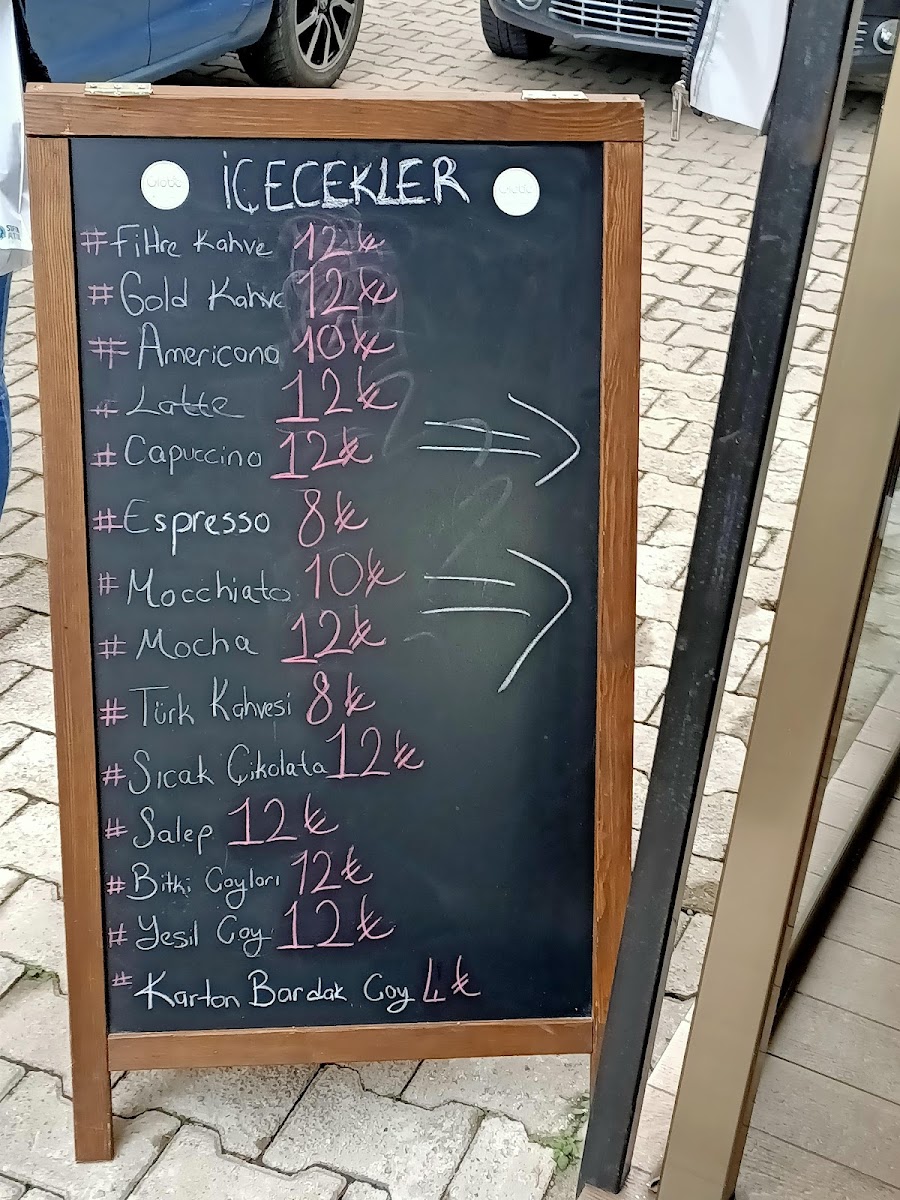 İÇECEKLER
# Filtre Kahve 12₺
# Gold Kahve 12₺
# Americano 10₺
# Latte 12₺
# Capuccino 12₺
# Espresso 8₺
# Mocchiato 10₺
# Mocha 12₺
# Türk Kahvesi 8₺
# Sıcak Çikolata 12₺
# Salep 12₺
# Bitki Çayları 12₺
# Yeşil Çay 12₺
# Karton Bardak Çay 4₺